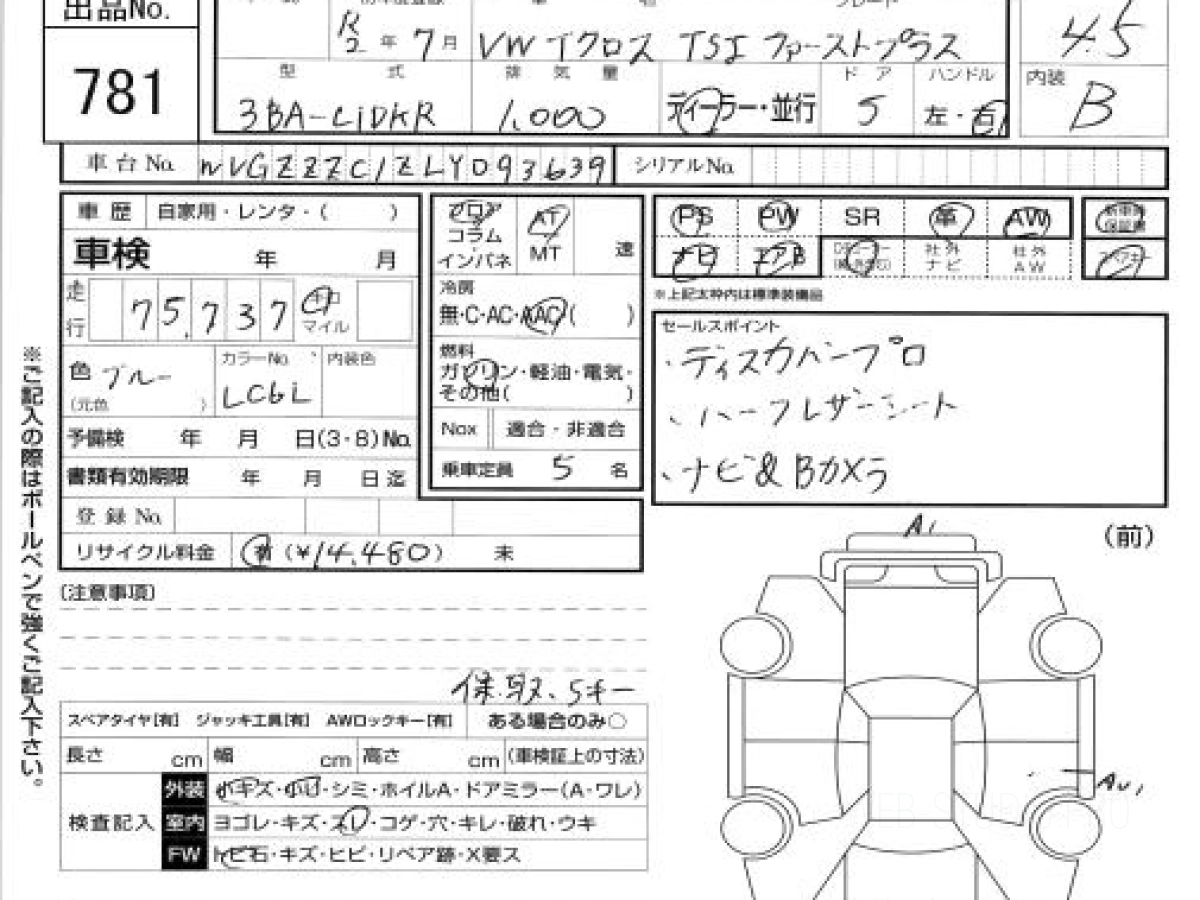 出品No.
781
R2年7月 VW Tクロス TSI ファーストプラス
4.5
型式 排気量 ドア ハンドル 内装
3BA-C1DKR 1,000 ディーラー・並行 5 左・右 B
車台No. WVGZZZC1ZLY093639 シリアルNo.
車歴 自家用・レンタ・( )
車検 年 月
走行 75,737 キロ マイル
色 ブルー カラーNo. LC6L 内装色
(元色 )
予備検 年 月 日(3・8)No.
書類有効期限 年 月 日迄
登録No.
リサイクル料金 有 (¥14,480) 未
フロア コラム インパネ
AT MT 速
冷房
無・C・AC・AAC( )
燃料
ガソリン・軽油・電気・
その他( )
Nox 適合・非適合
乗車定員 5 名
PS PW SR 革 AW
ナビ エアB 社外ナビ 社外AW
新車時保証書
※上記太枠内は標準装備品
セールスポイント
・ディスカバープロ
・ハーフレザーシート
・ナビ&Bカメラ
※ご記入の際はボールペンで強くご記入下さい。
(注意事項)
保.取.Sキー
スペアタイヤ[有] ジャッキ工具[有] AWロックキー[有] ある場合のみ○
長さ cm 幅 cm 高さ cm (車検証上の寸法)
検査記入
外装 小キズ・小凹・シミ・ホイルA・ドアミラー(A・ワレ)
室内 ヨゴレ・キズ・スレ・コゲ・穴・キレ・破れ・ウキ
FW トビ石・キズ・ヒビ・リペア跡・X要ス
A1
(前)
AU1